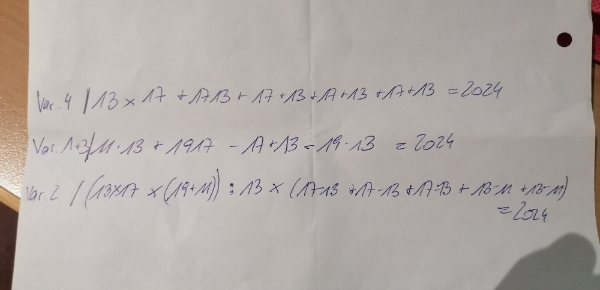 Var. 4 / 13 × 17 + 1713 + 17 + 13 + 17 + 13 + 17 + 13 = 2024
Var. 1+3/ 11 · 13 + 1917 - 17 + 13 - 19 - 13 = 2024
Var 2 / (13x17 x (19+11)) : 13 x (17-13 + 17-13 + 17-13 + 13-11 + 13-11)
= 2024